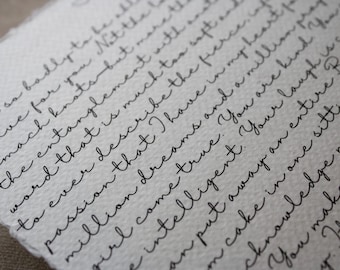 so badly to be all
ve for you. Not the lo
mach knots—but more
the entanglement with
word that is much too soft and
to ever describe the fierce,
passion that I have in my heart for
million dreams and a million pray
girl come true. You are kind. You
e intelligent. Your laugh is
an put away an entire
m cake in one sitt
acknowledge
You make